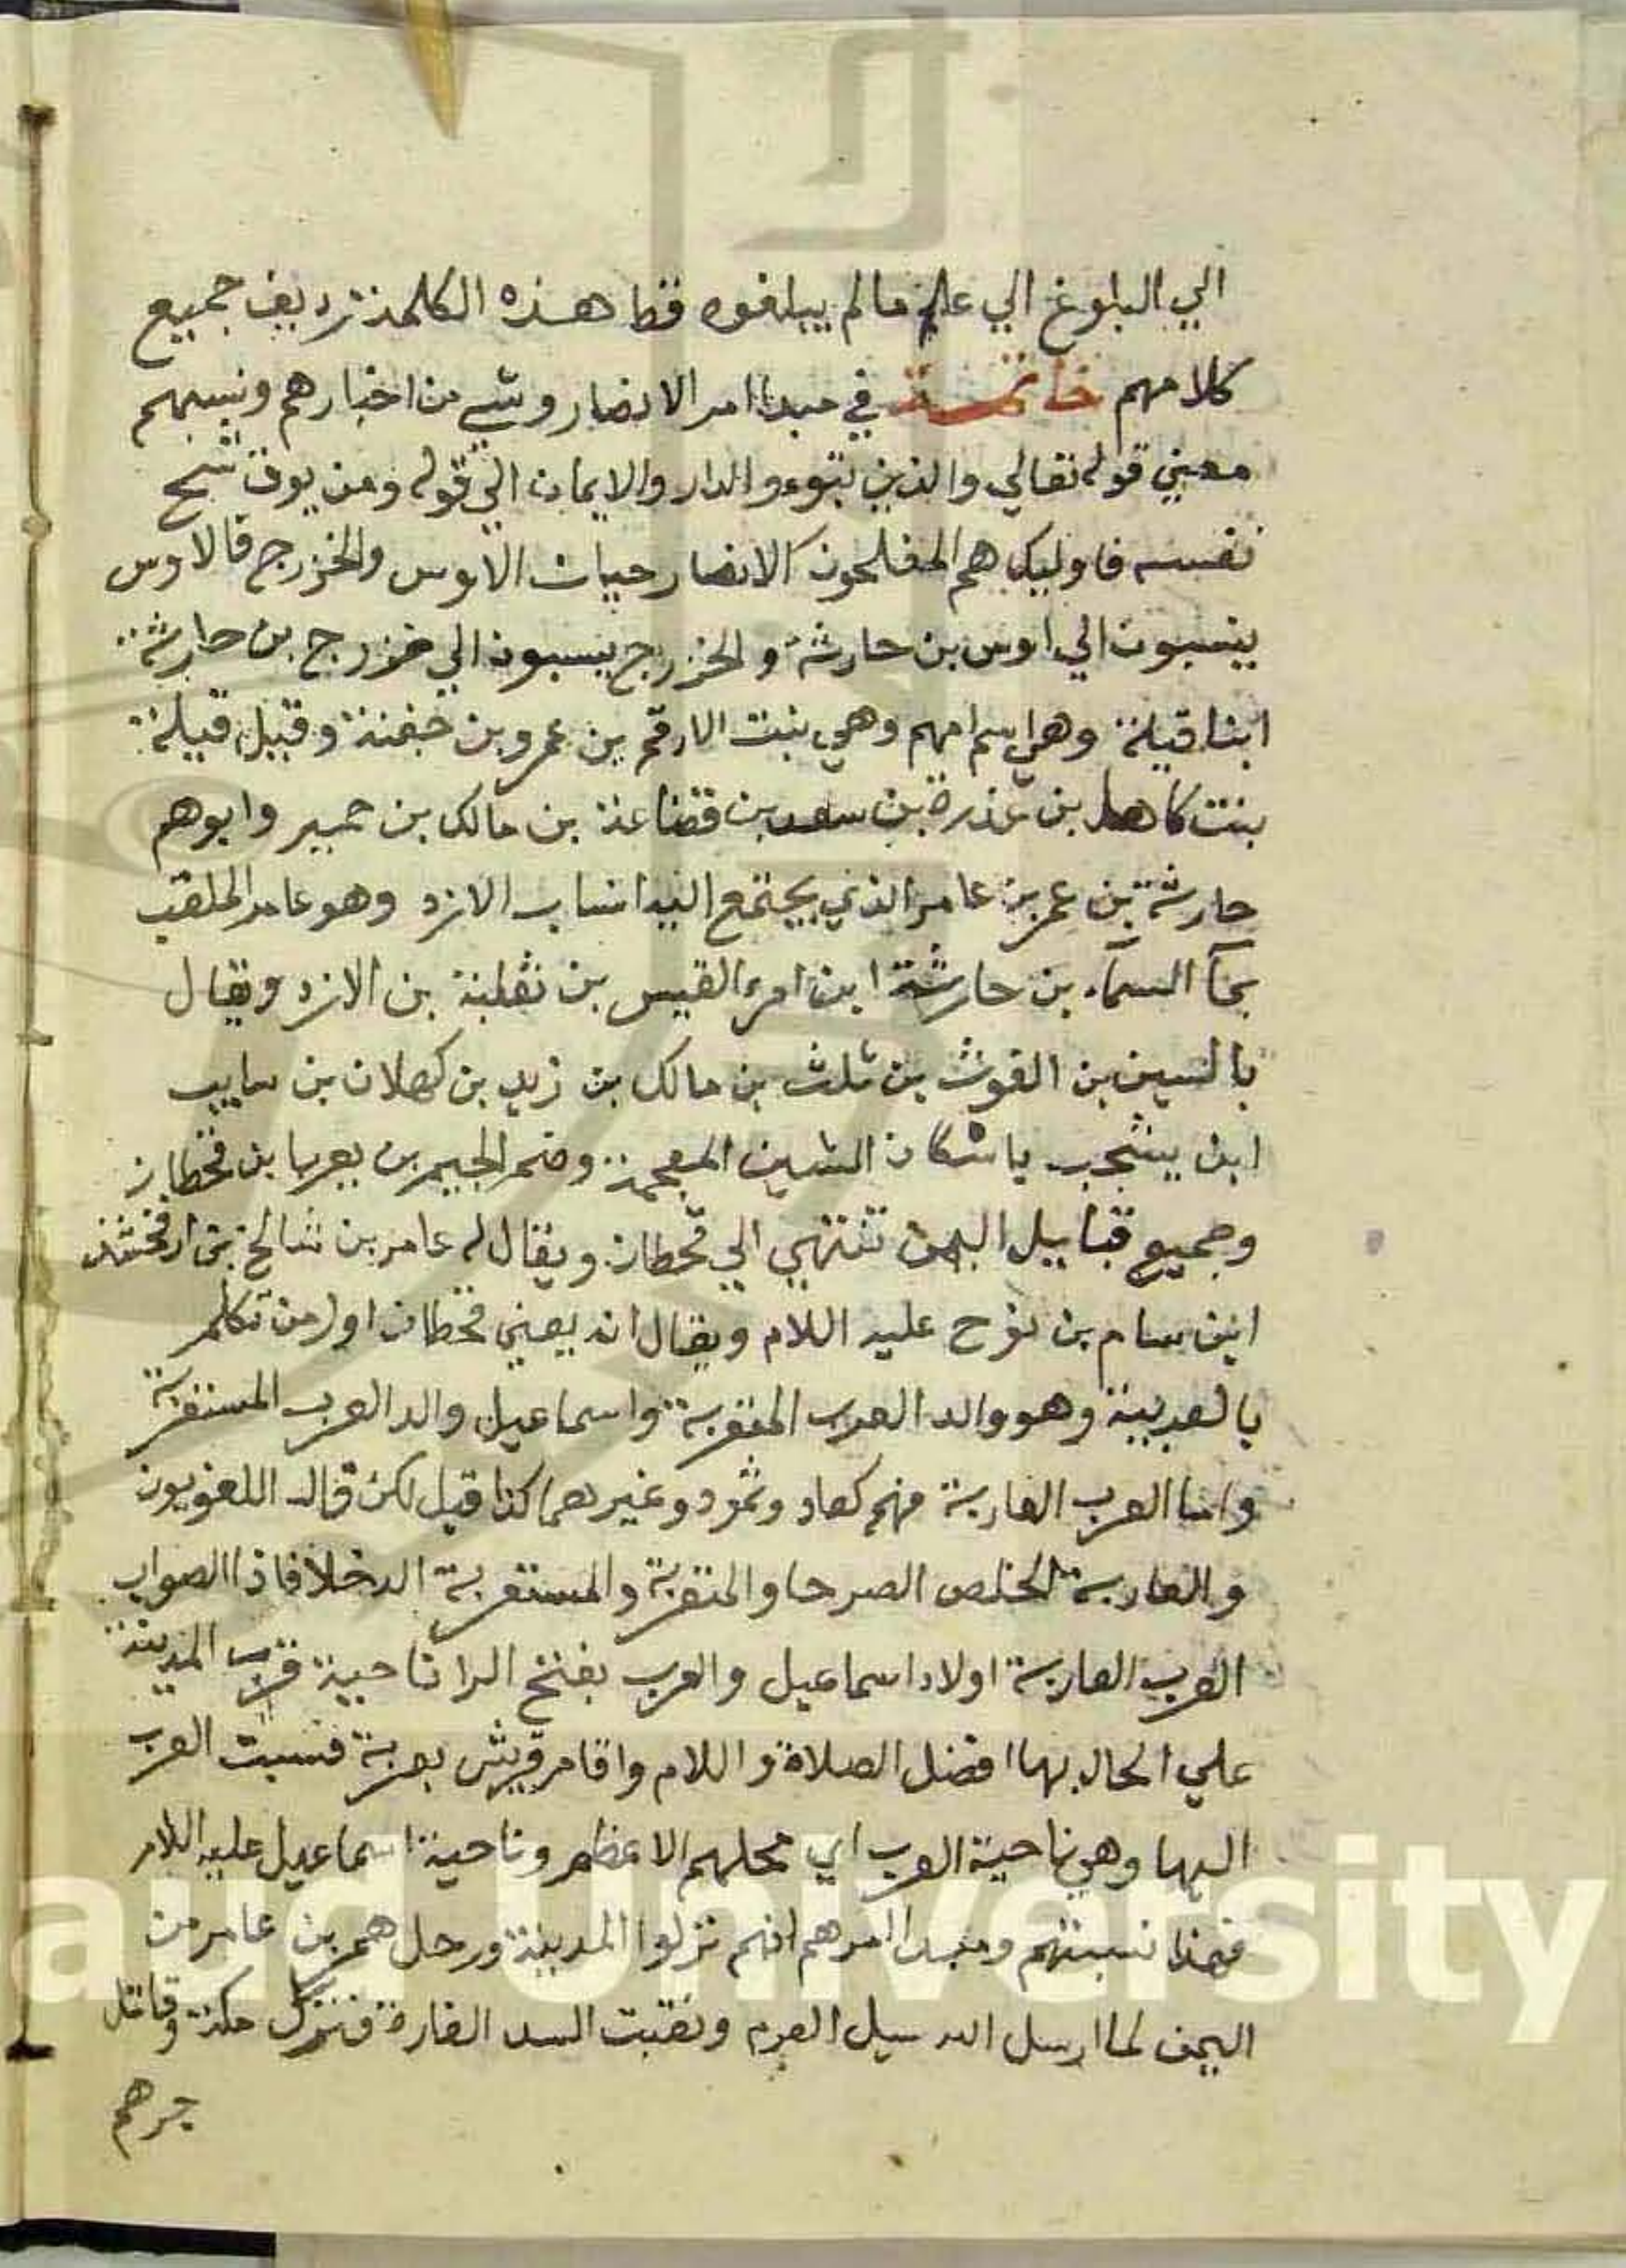 الي البلوغ الي علم ما لم يبلغوه فقط هذه الكلمة تزديف جميع
كلامهم خاتمة في مبدا امر الانصار وشي من اخبارهم ونسبهم
معني قوله تعالي والذين تبوءو الدار والايمان الي قوله ومن يوق شح
نفسه فاوليك هم المفلحون الانصار حيان الاوس والخزرج فالاوس
ينسبون الي اوس بن حارثة والخزرج ينسبون الي خزرج بن حارثة
ابنا قيلة وهي اسم امهم وهي بنت الارقم بن عمرو بن جفنة وقيل قيلة
بنت كاهل بن عذرة بن سعد بن قضاعة بن مالك بن حمير وابوهم
حارثة بن عمر بن عامر الذي يجتمع اليه انساب الازد وهو عامر الملقب
بمآ السمآء بن حارثة ابن امرء القيس بن ثعلبة بن الازد ويقال
بالسين بن الغوث بن ثلث بن مالك بن زيد بن كهلان بن
ابن يشجب باسكان الشين المعجمة وضم الجيم بن يعرب بن قحطان
وجميع قبايل اليمن تنتهي الي قحطان ويقال له عامر بن شالخ بن ارفخشذ
ابن سام بن نوح عليه اللام ويقال انه يعني قحطان اول من تكلم
بالعربية وهو والد العرب المتعربة واسماعيل والد العرب المستعربة
واما العرب العاربة فهم كعاد وثمود وغيرهما كذا قيل لكن قال اللغويون
والعاربة الخلص الصرحا والمتعربة والمستعربة الدخلا فاذا الصواب
العرب العاربة اولاد اسماعيل والعرب بفتح الرا ناحية قرب المدينة
علي الحال بها افضل الصلاة واللام واقام قريش بعربة فنسبت العرب
اليها وهي ناحية العرب اي محلهم الاعظم وناحية اسماعيل عليه اللام
فهذا نسبتهم ومبدا امرهم انهم نزلوا المدينة ورحل عمر بن عامر من
اليمن لما ارسل الله سيل العرم ونقبت السد الفارة فنزل مكة وقاتل
جرهم
aud University